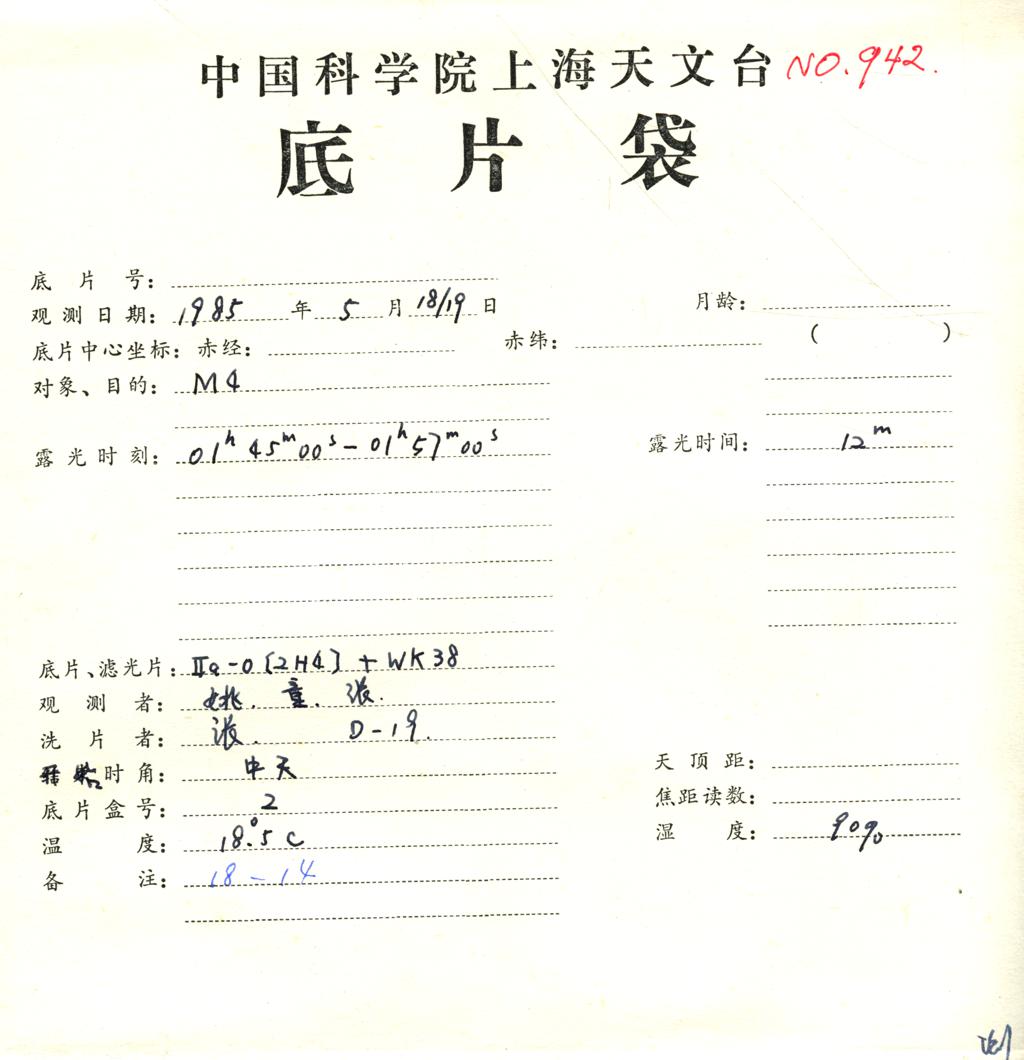 中国科学院上海天文台 NO.942.
底片袋
底片号:
观测日期: 1985 年 5 月 18/19 日 月龄:
底片中心坐标: 赤经: 赤纬: ( )
对象、目的: M4
露光时刻: 01h 45m 00s - 01h 57m 00s 露光时间: 12m
底片、滤光片: IIa-O [2H4] + WK38
观测者: 姚. 童. 张.
洗片者: 张. D-19.
时角: 中天 天顶距:
底片盒号: 2 焦距读数:
温度: 18°.5 C 湿度: 90%
备注: 18-14